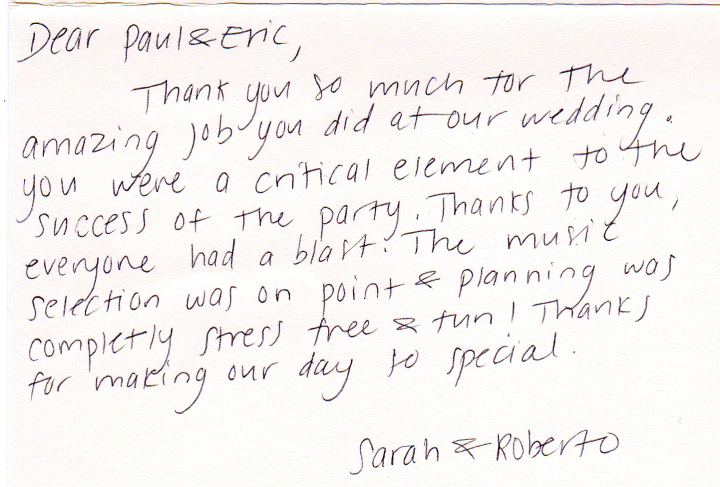 Dear Paul & Eric,
Thank you so much for the
amazing job you did at our wedding.
you were a critical element to the
success of the party. Thanks to you,
everyone had a blast! The music
selection was on point & planning was
completly stress free & fun! Thanks
for making our day so special.
Sarah & Roberto